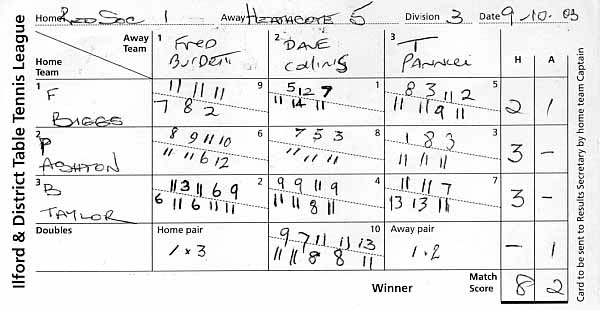 Ilford & District Table Tennis League
Home RedSoc 1 Away HEATHCOTE 5 Division 3 Date 9.10.03
Away Team 1 FRED BURDETT 2 DAVE COLLINS 3 T PANNELL H A
Home Team
1 F BIGGS 9 5 12 7 1 8 3 11 2 5 2 1
11 11 11 11 14 11 11 11 9 11
7 8 2
2 P ASHTON 8 9 11 10 6 7 5 3 8 1 8 3 3 3 -
11 11 6 12 11 11 11 11 11 11
3 B TAYLOR 11 3 11 6 9 2 9 9 11 9 4 11 11 7 7 3 -
6 11 6 11 11 11 11 8 11 13 13 11
Doubles Home pair 10 Away pair
1 x 3 9 7 11 11 13 1.2 - 1
11 11 8 8 11
Winner Match Score 8 2
Card to be sent to Results Secretary by home team Captain